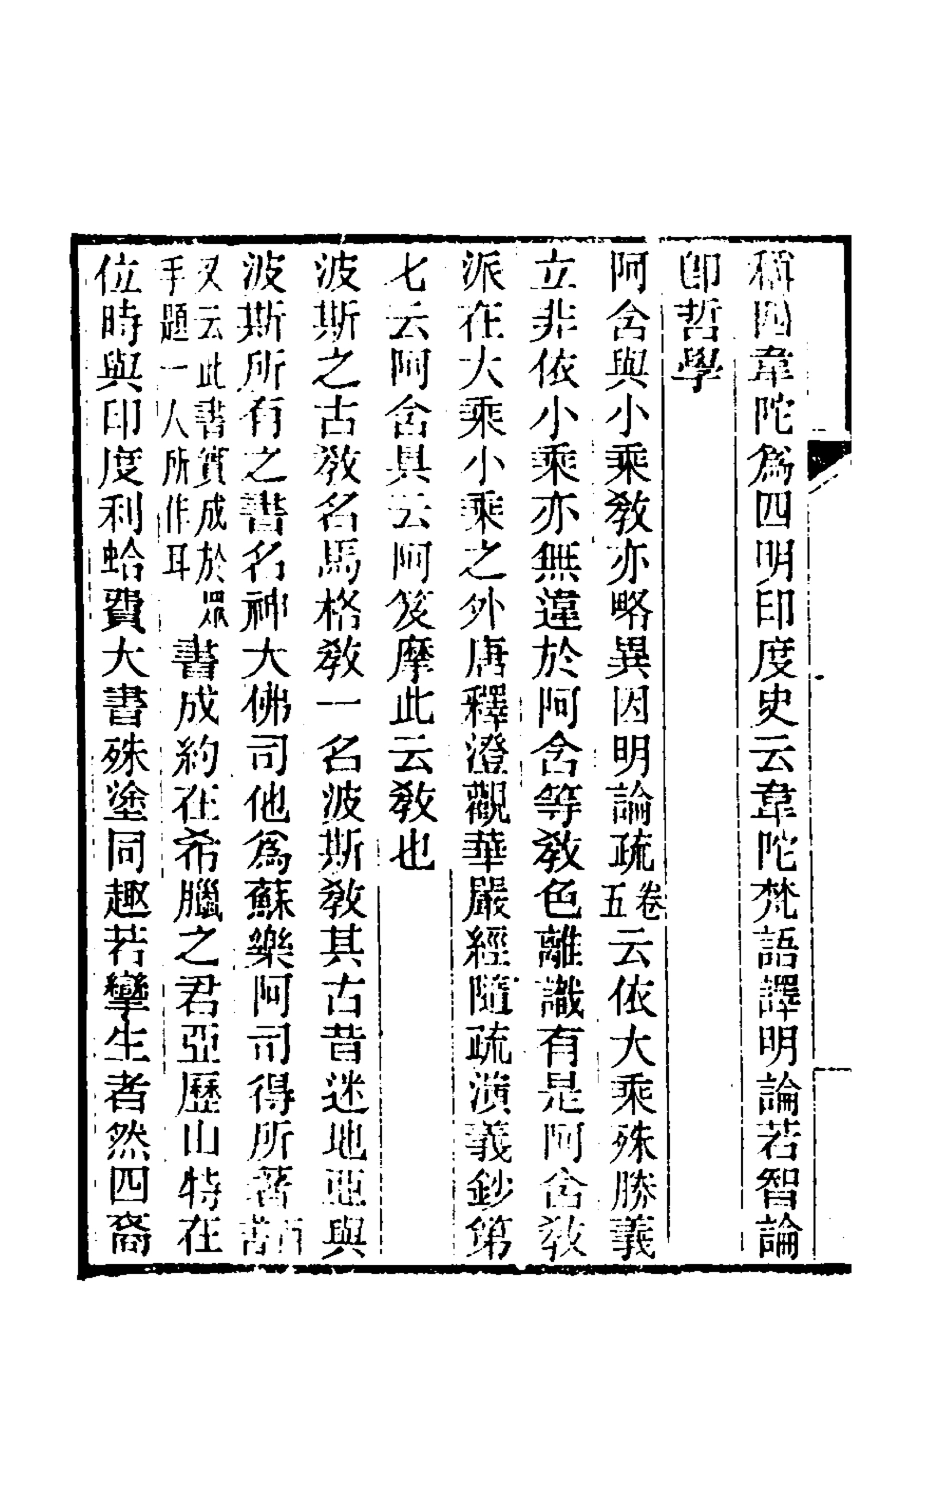 稱四韋陀爲四明印度史云韋陀梵語譯明論若智論
卽哲學
阿含與小乘敎亦略異因明論疏卷五云依大乘殊勝義
立非依小乘亦無違於阿含等敎色離識有是阿含敎
派在大乘小乘之外唐釋澄觀華嚴經隨疏演義鈔第
七云阿含具云阿笈摩此云敎也
波斯之古敎名馬格敎一名波斯敎其古昔迷地亞與
波斯所有之書名神大佛司他爲蘇樂阿司得所著西書
又云此書實成於眾手題一人所作耳書成約在希臘之君亞歷山特在
位時與印度利蛤費大書殊塗同趣若孿生者然四裔